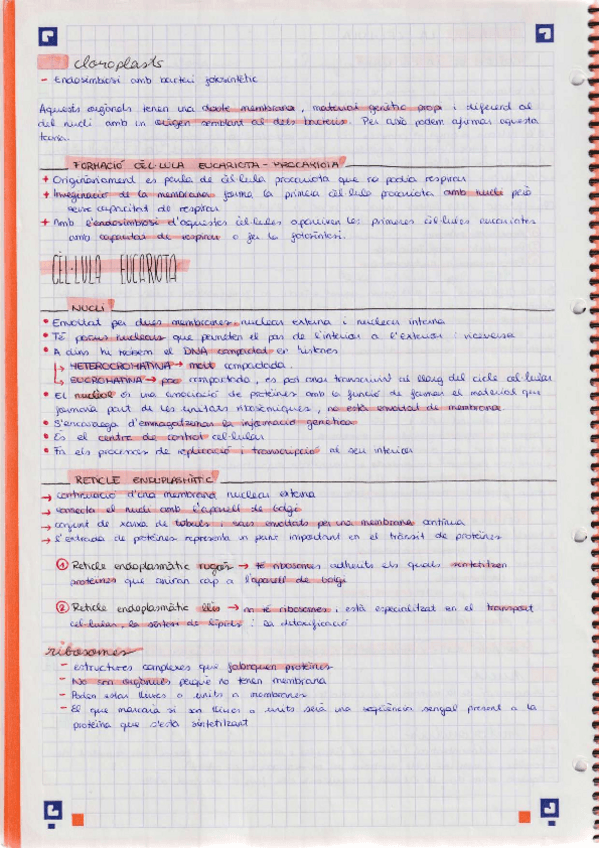 cloroplasts
- Endosimbiosi amb bacteri fotosintètic
Aquests orgànuls tenen una doble membrana, material genètic propi i diferent al
del nucli amb un origen semblant al dels bacteris. Per això podem afirmar aquesta
teoria.
FORMACIÓ CÈL·LULA EUCARIOTA - PROCARIOTA
+ Originàriament es parla de cèl·lula procariota que no podia respirar
+ Invaginació de la membrana forma la primera cèl·lula procariota amb nucli però
sense capacitat de respirar
+ Amb l'endosimbiosi d'aquestes cèl·lules apareixen les primeres cèl·lules eucariotes
amb capacitat de respirar o fer la fotosíntesi.
CÈL·LULA EUCARIOTA
NUCLI
• Envoltat per dues membranes: nuclear externa i nuclear interna
• Té porus nuclears que permeten el pas de l'interior a l'exterior i viceversa
• A dins hi trobem el DNA compactat en histones
↳ HETEROCROMATINA → molt compactada.
↳ EUCROMATINA → poc compactada, es pot anar transcrivint al llarg del cicle cel·lular
• El nuclèol és una associació de proteïnes amb la funció de formar el material que
formarà part de les unitats ribosòmiques, no està envoltat de membrana
• S'encarrega d'emmagatzemar la informació genètica
• És el centre de control cel·lular
• Fa els processos de replicació i transcripció al seu interior
RETICLE ENDOPLASMÀTIC
→ continuació d'una membrana nuclear externa
→ connecta el nucli amb l'aparell de Golgi
→ conjunt de xarxa de túbuls i sacs envoltats per una membrana contínua
→ L'entrada de proteïnes representa un punt important en el trànsit de proteïnes
① Reticle endoplasmàtic rugós → té ribosomes adherits els quals sintetitzen
proteïnes que aniran cap a l'aparell de Golgi
② Reticle endoplasmàtic llis → no té ribosomes i està especialitzat en el transport
cel·lular, la síntesi de lípids i la detoxificació
ribosomes
- estructures complexes que fabriquen proteïnes
- No són orgànuls perquè no tenen membrana
- Poden estar lliures o units a membranes
- El que marcarà si són lliures o units serà una seqüència senyal present a la
proteïna que s'està sintetitzant